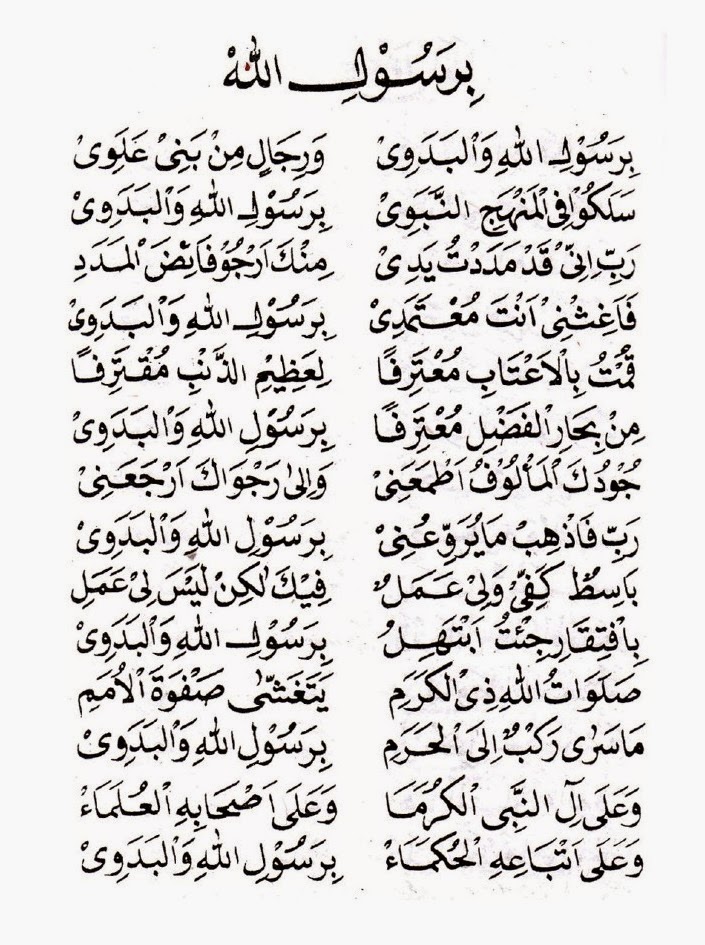 بِرَسُوْلِ اللهْ
بِرَسُوْلِ اللهِ وَالْبَدَوِىْ وَرِجَالٍ مِنْ بَنِىْ عَلَوِىْ
سَلَكُوْا فِى الْمَنْهَجِ النَّبَوِىْ بِرَسُوْلِ اللهِ وَالْبَدَوِىْ
رَبِّ اِنِّىْ قَدْ مَدَدْتُ يَدِىْ مِنْكَ اَرْجُوْ فَائِضَ الْمَدَدِ
فَاَغِثْنِىْ اَنْتَ مُعْتَمَدِىْ بِرَسُوْلِ اللهِ وَالْبَدَوِىْ
قُمْتُ بِالْاَعْتَابِ مُعْتَرِفًا لِعَظِيْمِ الذَّنْبِ مُقْتَرِفًا
مِنْ بِحَارِ الْفَضْلِ مُعْتَرِفًا بِرَسُوْلِ اللهِ وَالْبَدَوِىْ
جُوْدُكَ الْمَأْلُوْفُ اَطْمَعَنِىْ وَاِلىٰ رَجْوَاكَ اَرْجَعَنِىْ
رَبِّ فَاذْهِبْ مَايُرَوِّعُنِىْ بِرَسُوْلِ اللهِ وَالْبَدَوِىْ
بَاسِطٌ كَفِّىْ وَلِىْ عَمَلُ فِيْكَ لٰكِنْ لَيْسَ لِىْ عَمَلِ
بِافْتِقَارٍ جِئْتُ اَبْتَهِلُ بِرَسُوْلِ اللهِ وَالْبَدَوِىْ
صَلَوَاتُ اللهِ ذِى الْكَرَمِ يَتَغَشّٰى صَفْوَةَ الْاُمَمِ
مَاسَرٰى رَكْبٌ اِلَى الْحَرَمِ بِرَسُوْلِ اللهِ وَالْبَدَوِىْ
وَعَلَى اٰلِ النَّبِّى الْكُرَمَا وَعَلَى اَصْحَابِهِ الْعُلَمَاءْ
وَعَلَى اَتْبَاعِهِ الْحُكَمَاءْ بِرَسُوْلِ اللهِ وَالْبَدَوِىْ